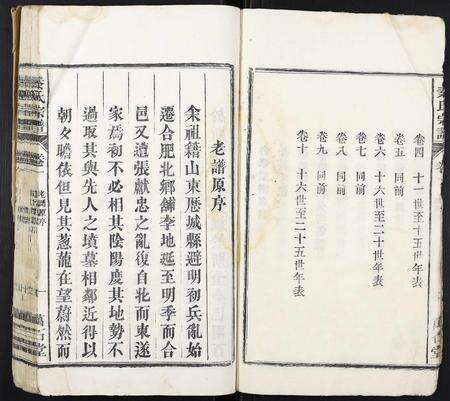 卷四 十一世至十五世年表
卷五 同前
卷六 十六世至二十世年表
卷七 同前
卷八 同前
卷九 同前
卷十 十六世至二十五世年表
老譜原序
余祖籍山東歷城縣避明初兵亂始
遷合肥北鄉鋪李地延至明季而合
邑又遭張獻忠之亂復自北而東遂
家焉初不必相其陰陽度其地勢不
過取其與先人之墳墓相鄰近得以
朝夕瞻依但見其蔥龍在望蔚然而
氏宗譜
老譜原序
一